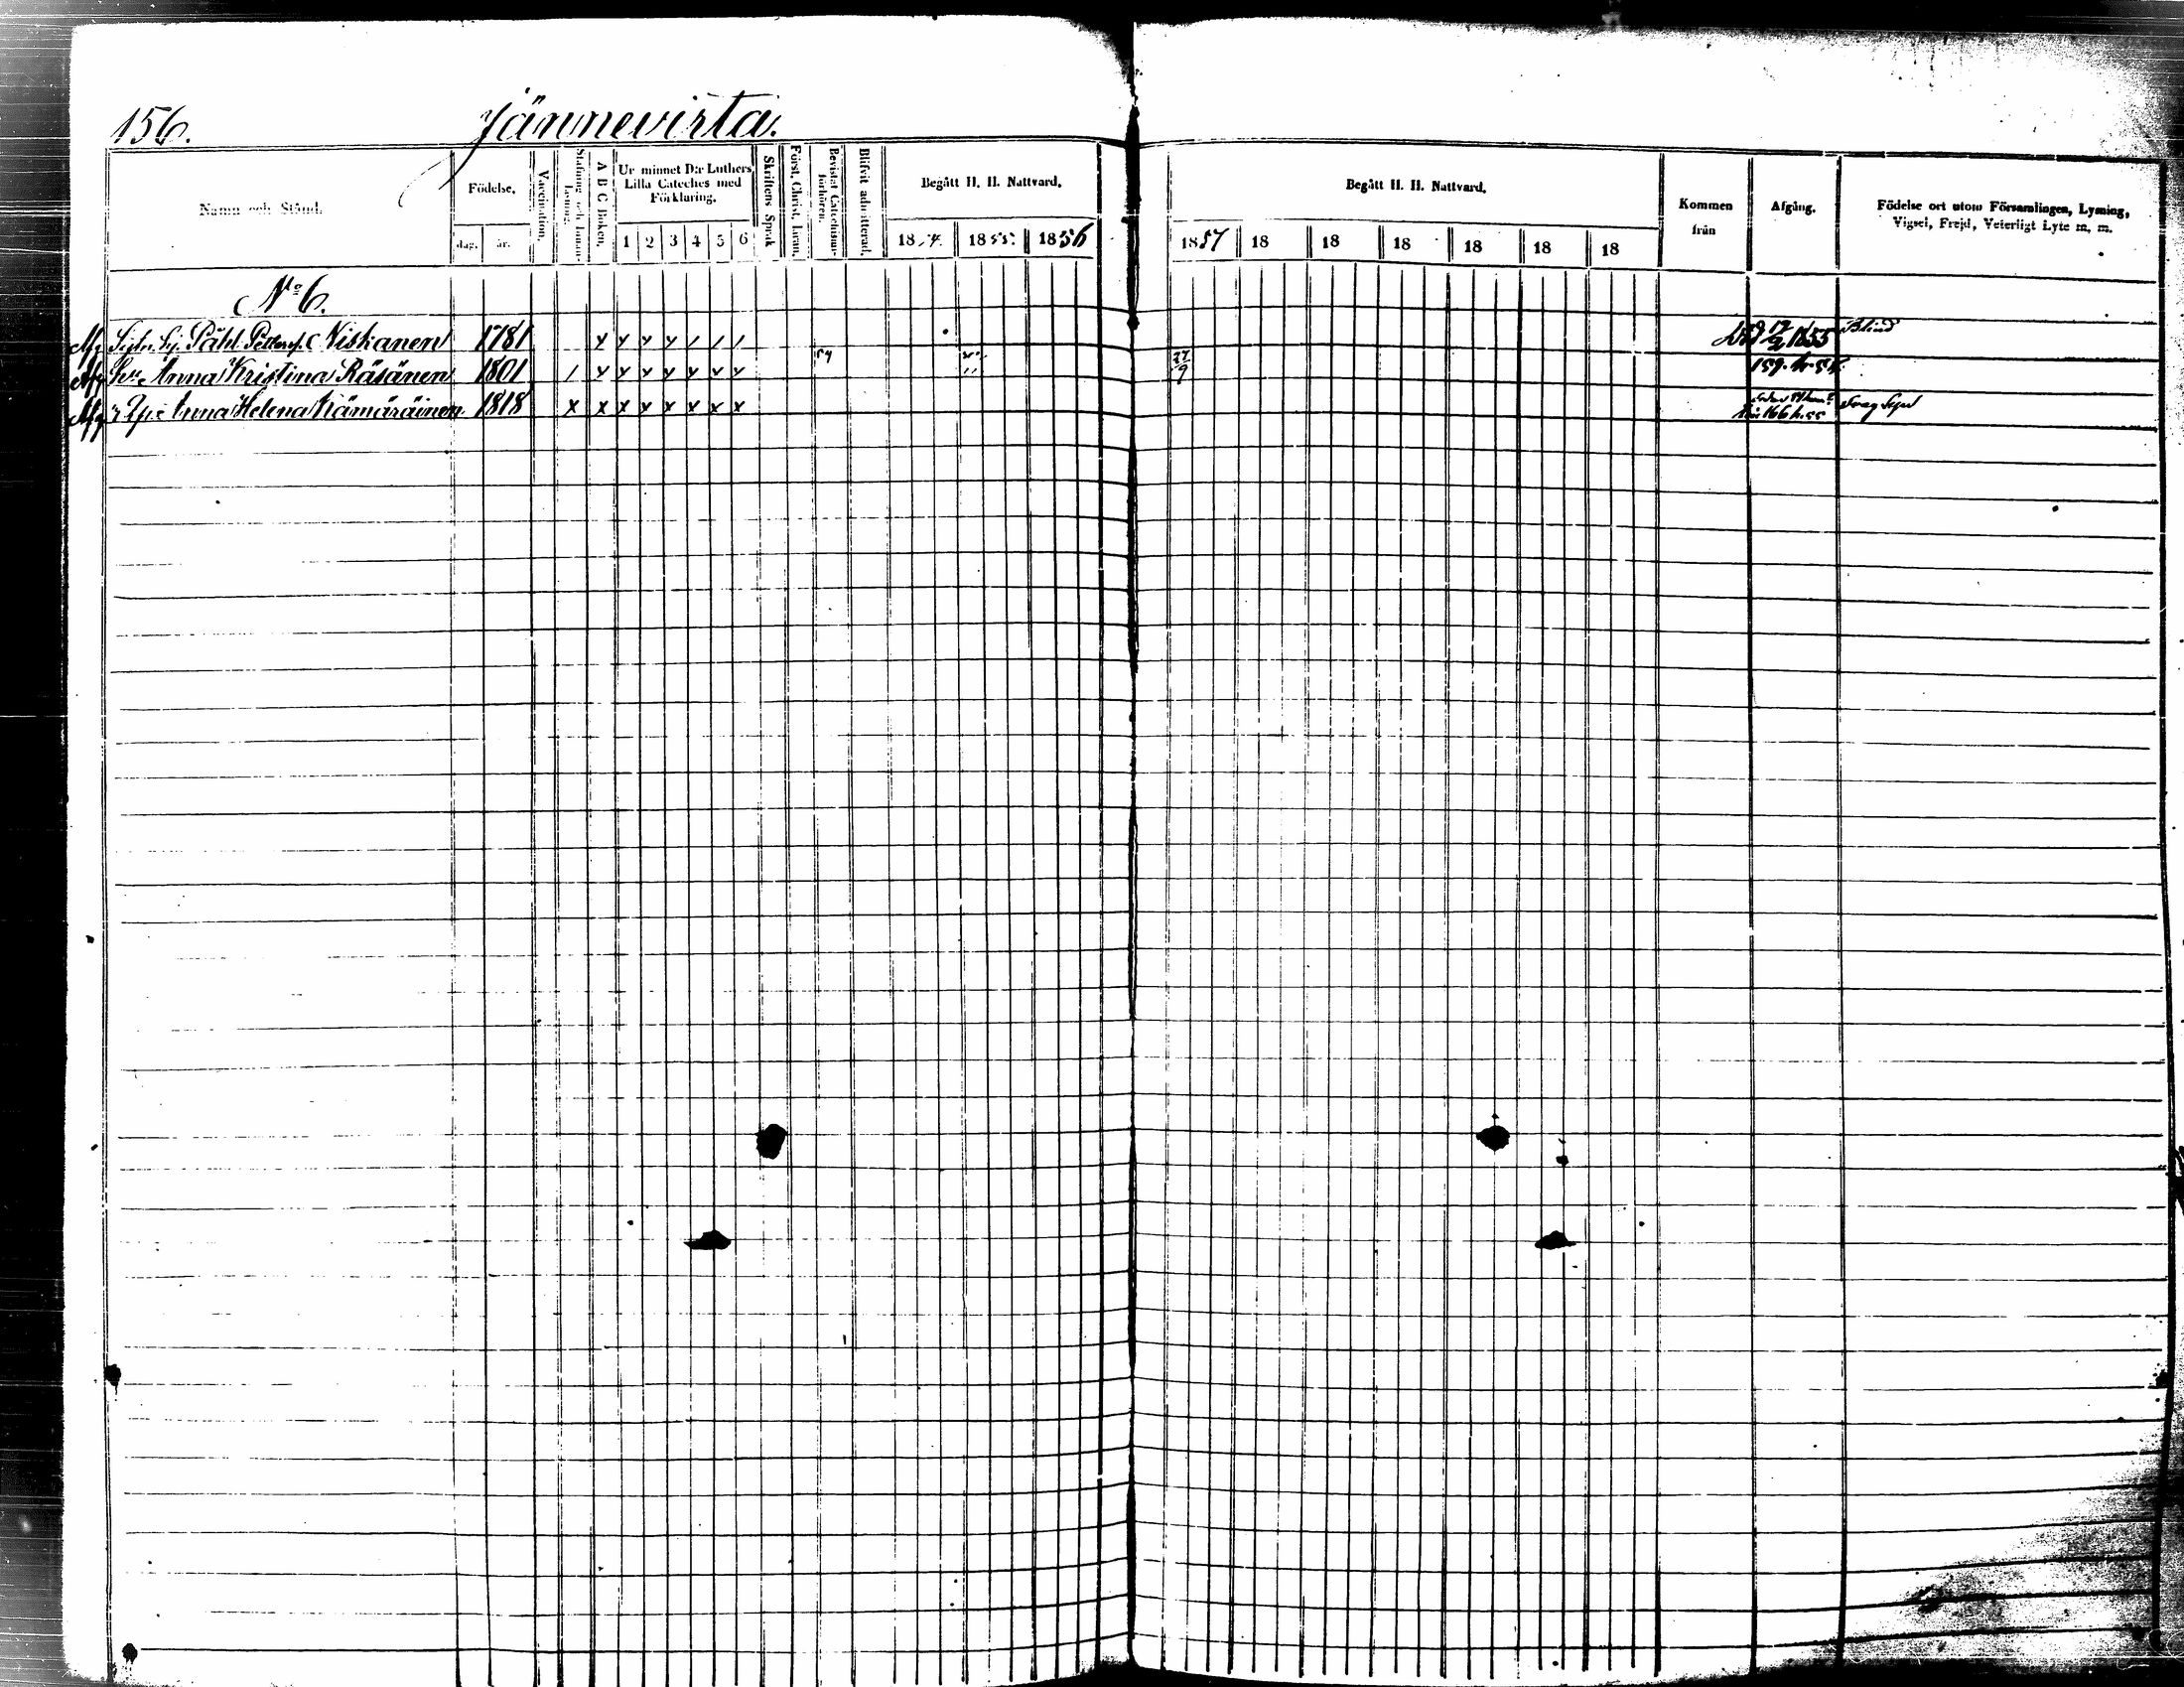 156.
Jännevirta.
Namn och Stånd.
Födelse.
dag. år.
Vaccination.
Stafning och Innanläsning.
A B C Boken.
Ur minnet D:r Luthers Lilla Cateches med Förklaring.
1 2 3 4 5 6
Skriftens Språk
Först. Christ. Läran.
Bevistat Catechismiförhören.
Blifvit admitterad.
Begått H. H. Nattvard.
18 1855. 1856
Begått H. H. Nattvard.
1857 18 18 18 18 18 18
Kommen från
Afgång.
Födelse ort utom Församlingen, Lysning, Vigsel, Frejd, Veterligt Lyte m. m.
No 6.
Afg Påhl Niskanen 1781 x x x x / / / 1855 Blind
Afg Anna Kristina Räsänen 1801 / x x x x x x x 54 27/9 159.
Afg Anna Helena Kämäräinen 1818 x x x x x x x x 166